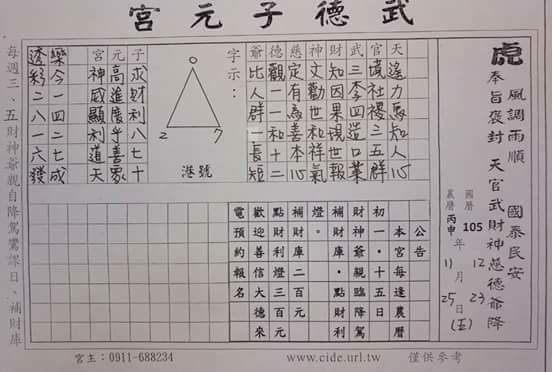 武德子元宮
虎
風調雨順 國泰民安
奉旨褒封 天官武財神慈德爺降
國曆 105 年 12 月 23 日 (五)
農曆 丙申 11 25
天遙力馬知人心
官 社稷三五群
武三李四造口業
財知因果現世報
神文勸世和祥氣
慈定有為善本心
德觀一一和十二
爺比人群一長短
字示：
0
2 7
港號
子求財利八七十
元高進廣乎善眾
宮神威顯利道天
樂今一四二七成
透彩二八一六發
公告
本宮每逢農曆
初一·十五日
財神爺親臨降駕
補財庫·點財利
燈。
補財庫二百元
點財利燈三百元
歡迎善信大德來
電預約報名
每週三、五財神爺親自降駕鸞課日、補財庫
宮主：0911-688234
www.cide.url.tw
僅供參考